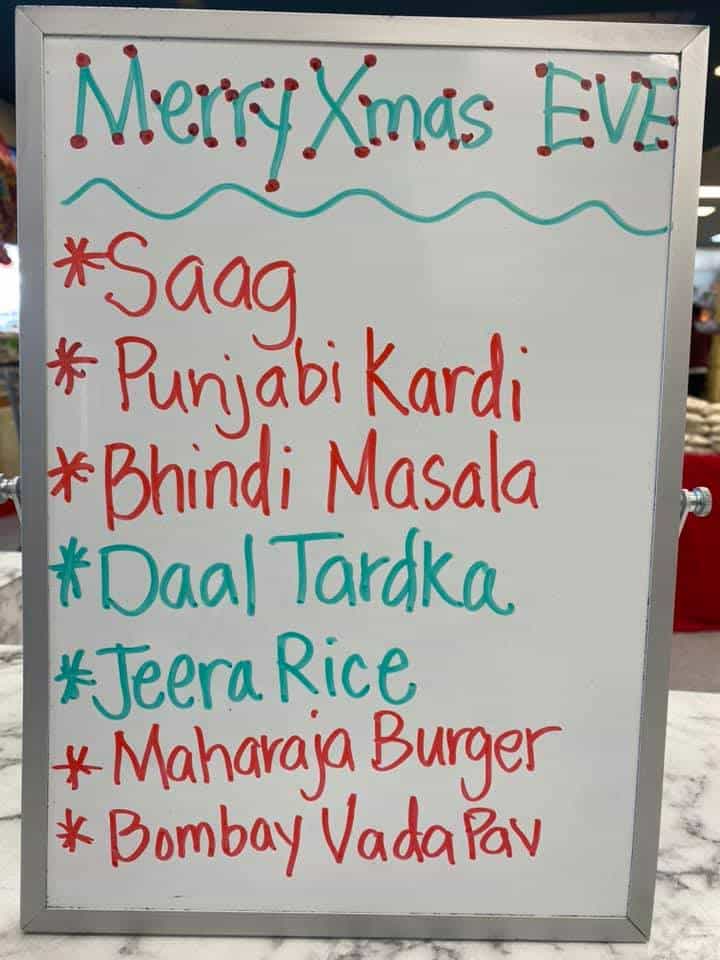 Merry Xmas EVE
*Saag
* Punjabi Kardi
*Bhindi Masala
*Daal Tardka
*Jeera Rice
* Maharaja Burger
* Bombay Vada Pav